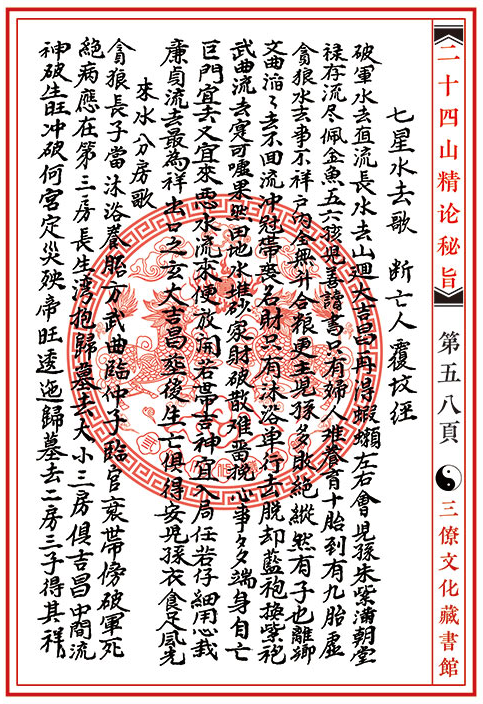 二十四山精论秘旨 第五八頁 三僚文化藏書館
七星水去歌 断亡人覆坟经
破軍水去直流長水去山迴大吉昌再得蝦左右會兒孫朱紫滿朝堂
禄存流尽佩金魚五六孩兒善讀書只有婦人难養育十胎到有九胎虚
貪狼水去事不祥户内全無升合粮更主兒孫多敗絶縱然有子也離鄉
文曲滔々去不回流冲冠帶要名財只有沐浴单行去脱却藍袍換紫袍
武曲流去寔可嘘果然田地水堆砂家財破散难啬挽心事多々端身自亡
巨門宜去又宜來惡水流來便放開若帶吉神宜入局任若仔細用心裁
廉貞流去最為祥出口之玄大吉昌葬後生亡俱得安兒孫衣食足風光
來水分房歌
貪狼長子當沐浴養胎方武曲臨仲子臨官衰帶傍破軍死
絶病應在第三房長生湾抱歸墓去大小三房俱吉昌中間流
神破生旺冲破何宫定災殃帝旺逶迤歸墓去二房三子得其祥